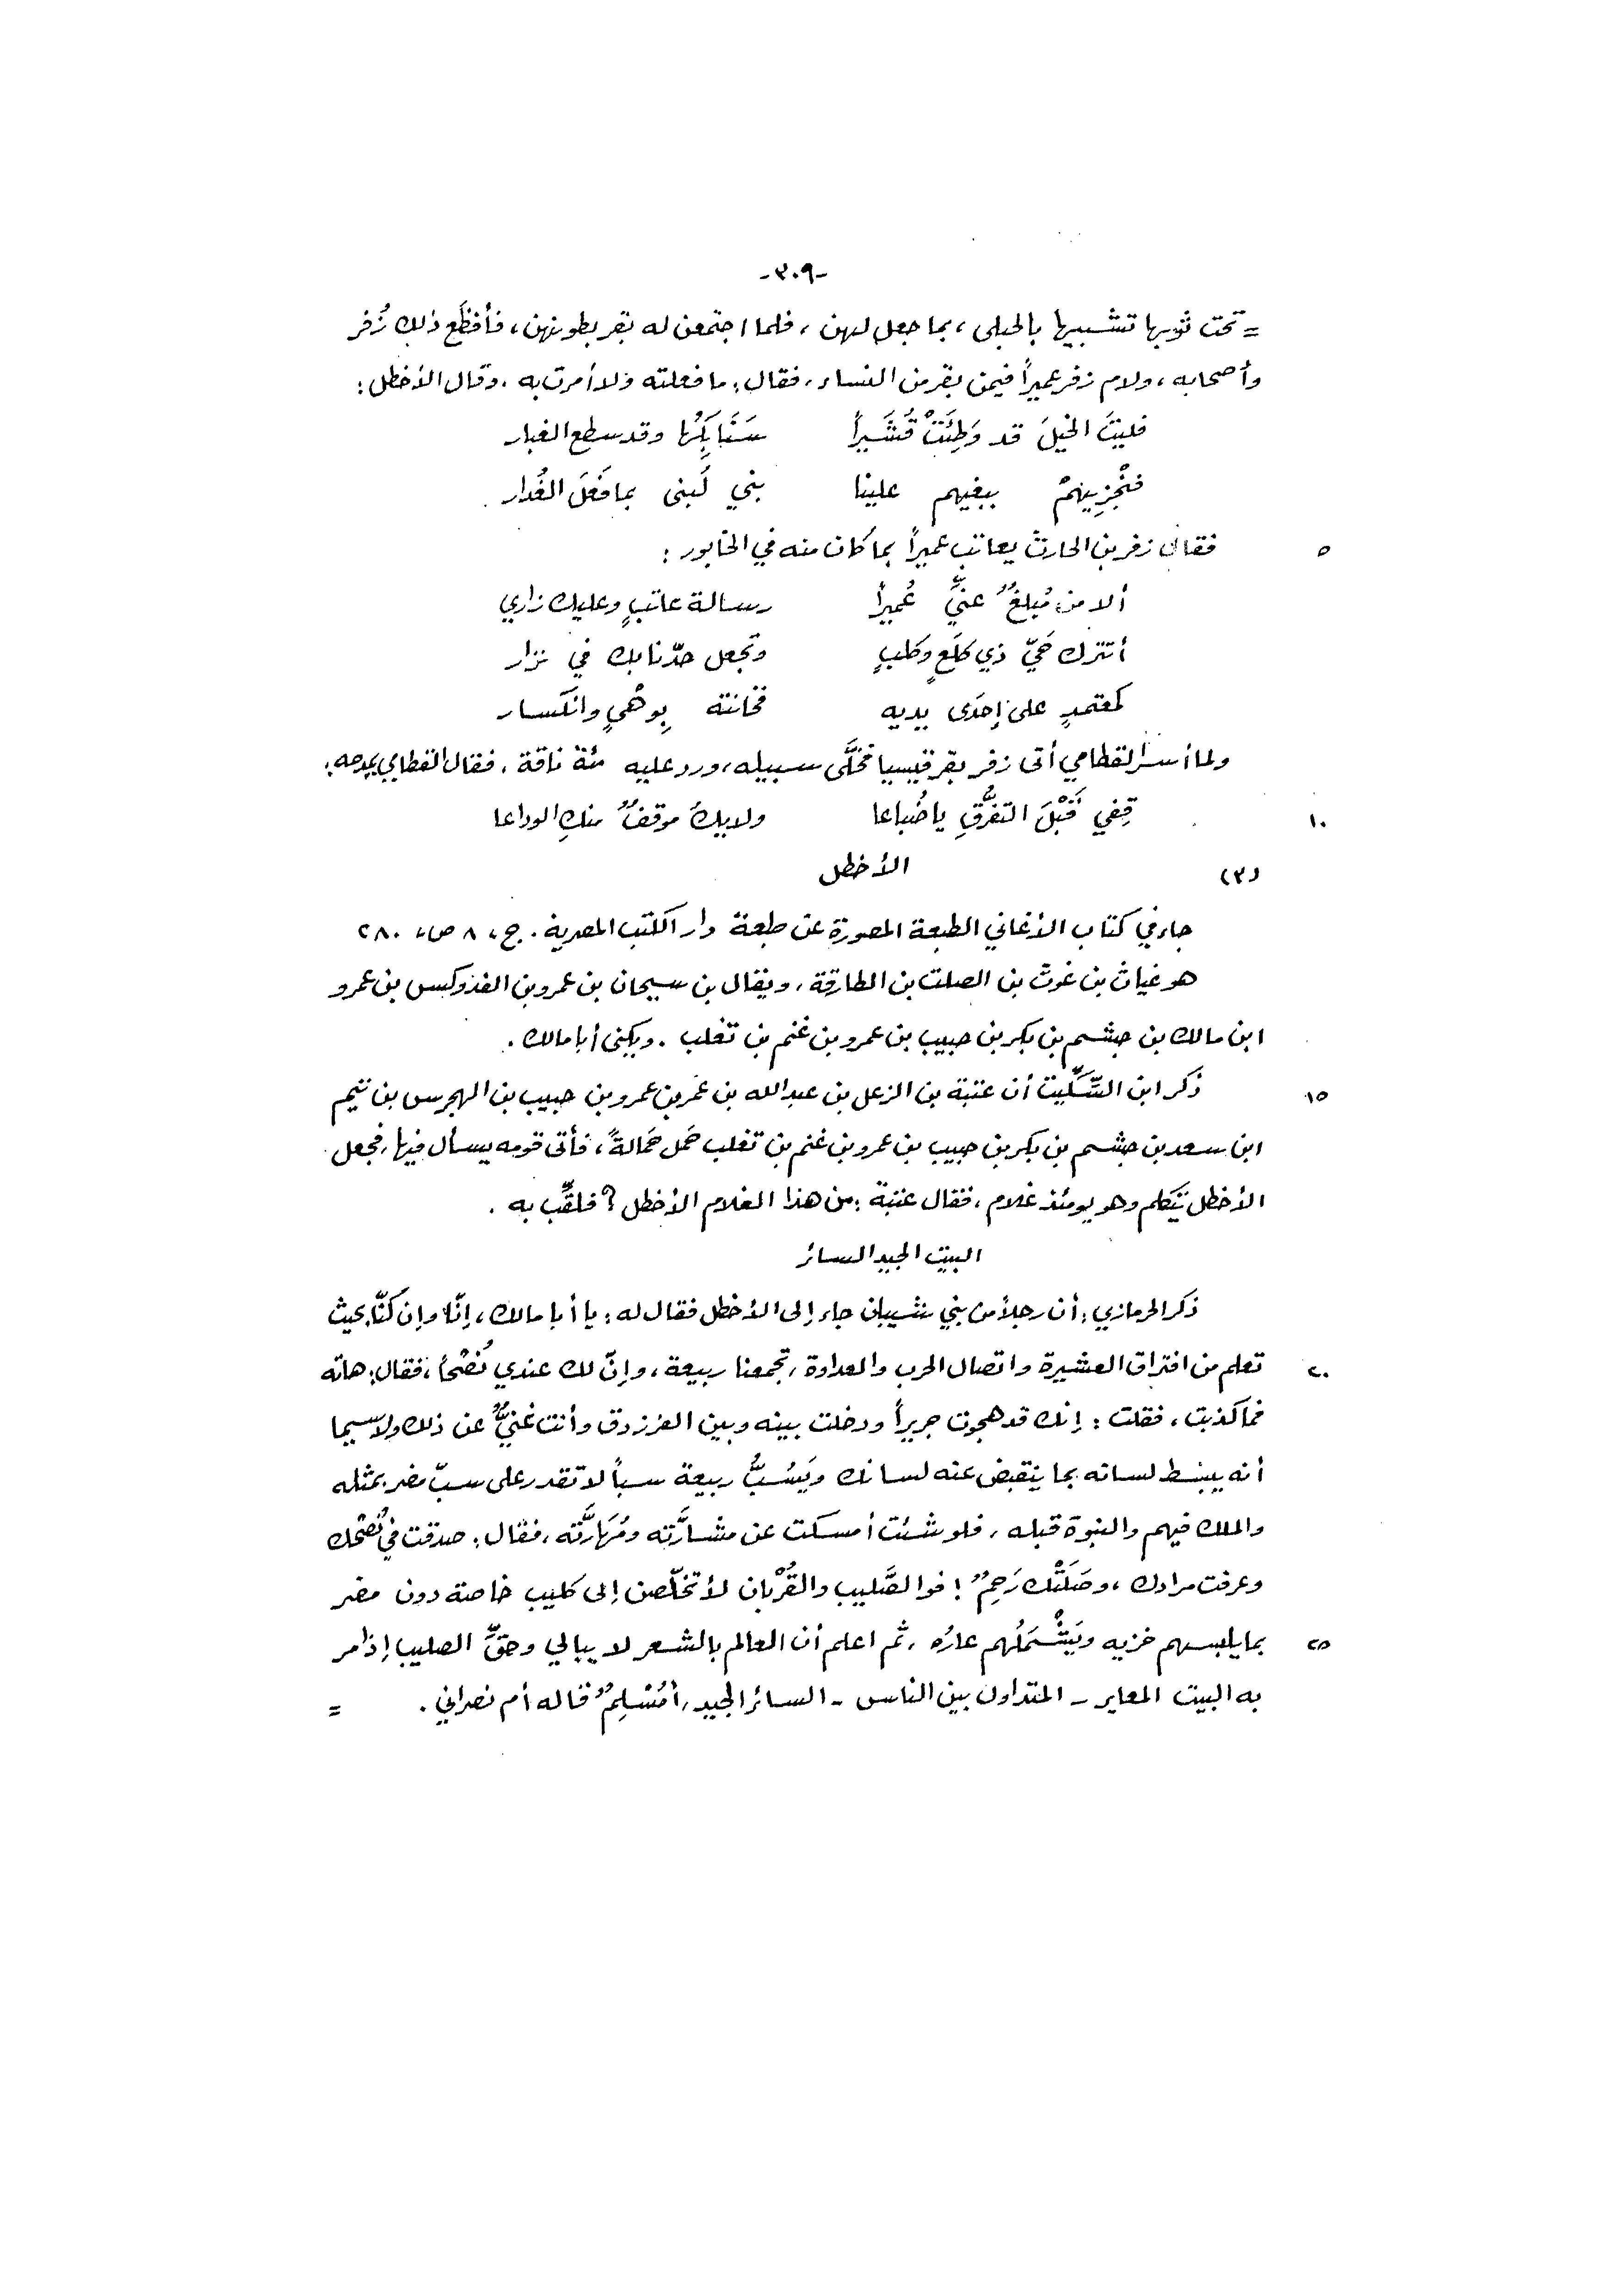 -٣٠٩-
= تحت ثوبها تشبيها بالحبلى، بما جعل لهن، فلما اجتمعن له بقر بطونهن، فأفظَع ذلك زُفر
وأصحابه، ولام زفر عميراً فيمن بقر من النساء، فقال: ما فعلته ولا أمرت به، وقال الأخطل:
فليتَ الخيلَ قد وَطِئَتْ قُشَيراً سَنَابِكُها وقد سطع الغبار
فنُجْزِيهمْ ببغيهم علينا بني لُبنى بما فَعَلَ الغُدار
٥ فقال زفر بن الحارث يعاتب عميراً بما كان منه في الخابور:
ألا من مُبلغٌ عنّي عُميراً رسالة عاتبٍ وعليك زاري
أتترك حَيّ ذي كلَعٍ وكلبٍ وتجعل حدّنا بك في نزار
كمعتمدٍ على إحدَى يديه فخانته بِوهْيٍ وانكسار
ولما أسر القطامي أتى زفر بقرقيسيا فخلَّى سبيله، ورد عليه مئة ناقة، فقال القطامي يمدحه:
١٠ قِفي قَبْلَ التفرُّقِ يا ضُباعا ولا يكُ موقفٌ منكِ الوداعا
(٣) الأخطل
جاء في كتاب الأغاني الطبعة المصورة عن طبعة دار الكتب المصرية. ج، ٨ ص، ٢٨٠
هو غياث بن غوث بن الصلت بن الطارقة، ويقال بن سيحان بن عمرو بن الفدوكس بن عمرو
ابن مالك بن جشم بن بكر بن حبيب بن عمرو بن غنم بن تغلب. ويكنى أبا مالك.
١٥ ذكر ابن السِّكِّيت أن عتبة بن الزعل بن عبدالله بن عمر بن عمرو بن حبيب بن الهجرس بن تيم
ابن سعد بن جشم بن بكر بن حبيب بن عمرو بن غنم بن تغلب حَمل حَمالةً، فأتى قومه يسأل فيها، فجعل
الأخطل يتكلم وهو يومئذ غلام، فقال عتبة: من هذا الغلام الأخطل؟ فلقِّب به.
البيت الجيد السائر
ذكر الحرمازي: أن رجلاً من بني شيبان جاء إلى الأخطل فقال له: يا أبا مالك، إنّا وإن كنّا بحيث
٢٠ تعلم من افتراق العشيرة واتصال الحرب والعداوة، تجمعنا ربيعة، وإنّ لك عندي نُصْحاً، فقال: هاته
فما كذبت، فقلت: إنك قد هجوت جريراً ودخلت بينه وبين الفرزدق وأنت غنيٌّ عن ذلك ولا سيما
أنه يبسط لسانه بما ينقبض عنه لسانك ويَسُبُّ ربيعة سباً لا تقدر على سبّ مضر بمثله
والملك فيهم والنبوة قبله، فلو شئت أمسكت عن مشارَّته ومُهارَّته، فقال: صدقت في نُصْحك
وعرفت مرادك، وصَلَتْك رَحِمٌ! فوالصَّليب والقُرْبان لأتخلّصن إلى كليب خاصة دون مضر
٢٥ بما يلبسهم خزيه ويَشْمَلُهم عارُه، ثم اعلم أن العالم بالشعر لا يبالي وحقِّ الصليب إذا مر
به البيت المعاير - المتداول بين الناس - السائر الجيد، أمُسْلِمٌ قاله أم نصراني. =